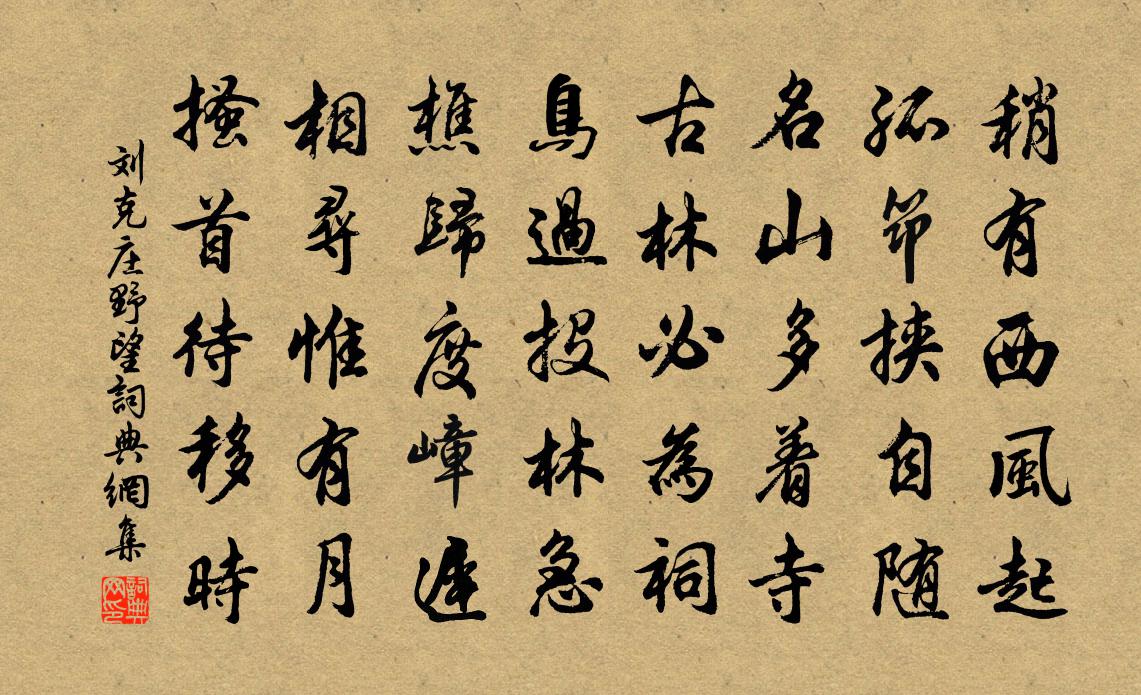 稍有西風起
孤笻挾自随
名山多着寺
古林必為祠
鳥過投林急
樵歸度嶂遲
相尋惟有月
搔首待移時
刘克庄野望詞典網集
詞典网印